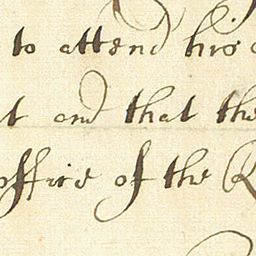 to attend his
t and that the
office of the R